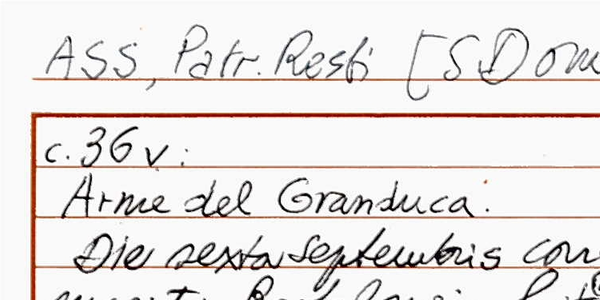 ASS, Patr. Resti [S Dom
c. 36 v:
Arme del Granduca:
Die sexta septembris con